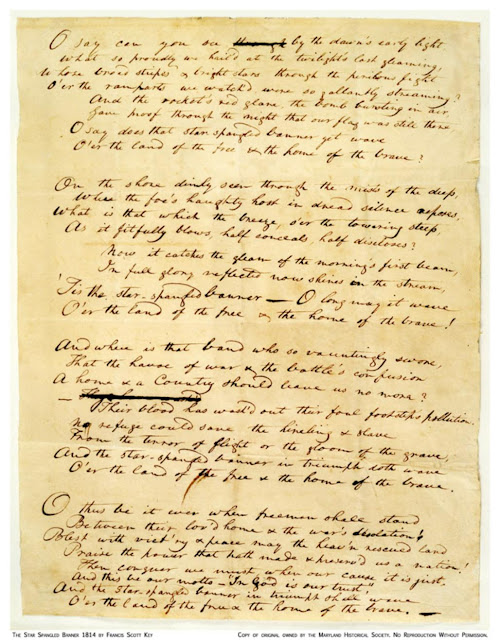 O say can you see ~~through~~ by the dawn's early light
What so proudly we hail'd at the twilight's last gleaming,
Whose broad stripes & bright stars through the perilous fight
O'er the ramparts we watch'd, were so gallantly streaming?
And the rocket's red glare, the bomb bursting in air
Gave proof through the night that our flag was still there
O say does that star-spangled banner yet wave
O'er the land of the free & the home of the brave?
On the shore dimly seen through the mists of the deep,
Where the foe's haughty host in dread silence reposes,
What is that which the breeze, o'er the towering steep,
As it fitfully blows, half conceals, half discloses?
Now it catches the gleam of the morning's first beam,
In full glory reflected now shines in the stream,
'Tis the star-spangled banner — O long may it wave
O'er the land of the free & the home of the brave!
And where is that band who so vauntingly swore,
That the havoc of war & the battle's confusion
A home & a Country should leave us no more?
—
Their blood has wash'd out their foul footsteps pollution.
No refuge could save the hireling & slave
From the terror of flight or the gloom of the grave,
And the star-spangled banner in triumph doth wave
O'er the land of the free & the home of the brave.
O thus be it ever when freemen shall stand
Between their lov'd home & the war's desolation!
Blest with vict'ry & peace may the heav'n rescued land
Praise the power that hath made & preserv'd us a nation!
Then conquer we must, when our cause it is just,
And this be our motto — In God is our trust,
And the star-spangled banner in triumph shall wave
O'er the land of the free & the home of the brave. —
The Star Spangled Banner 1814 by Francis Scott Key
Copy of original owned by the Maryland Historical Society. No Reproduction Without Permission.